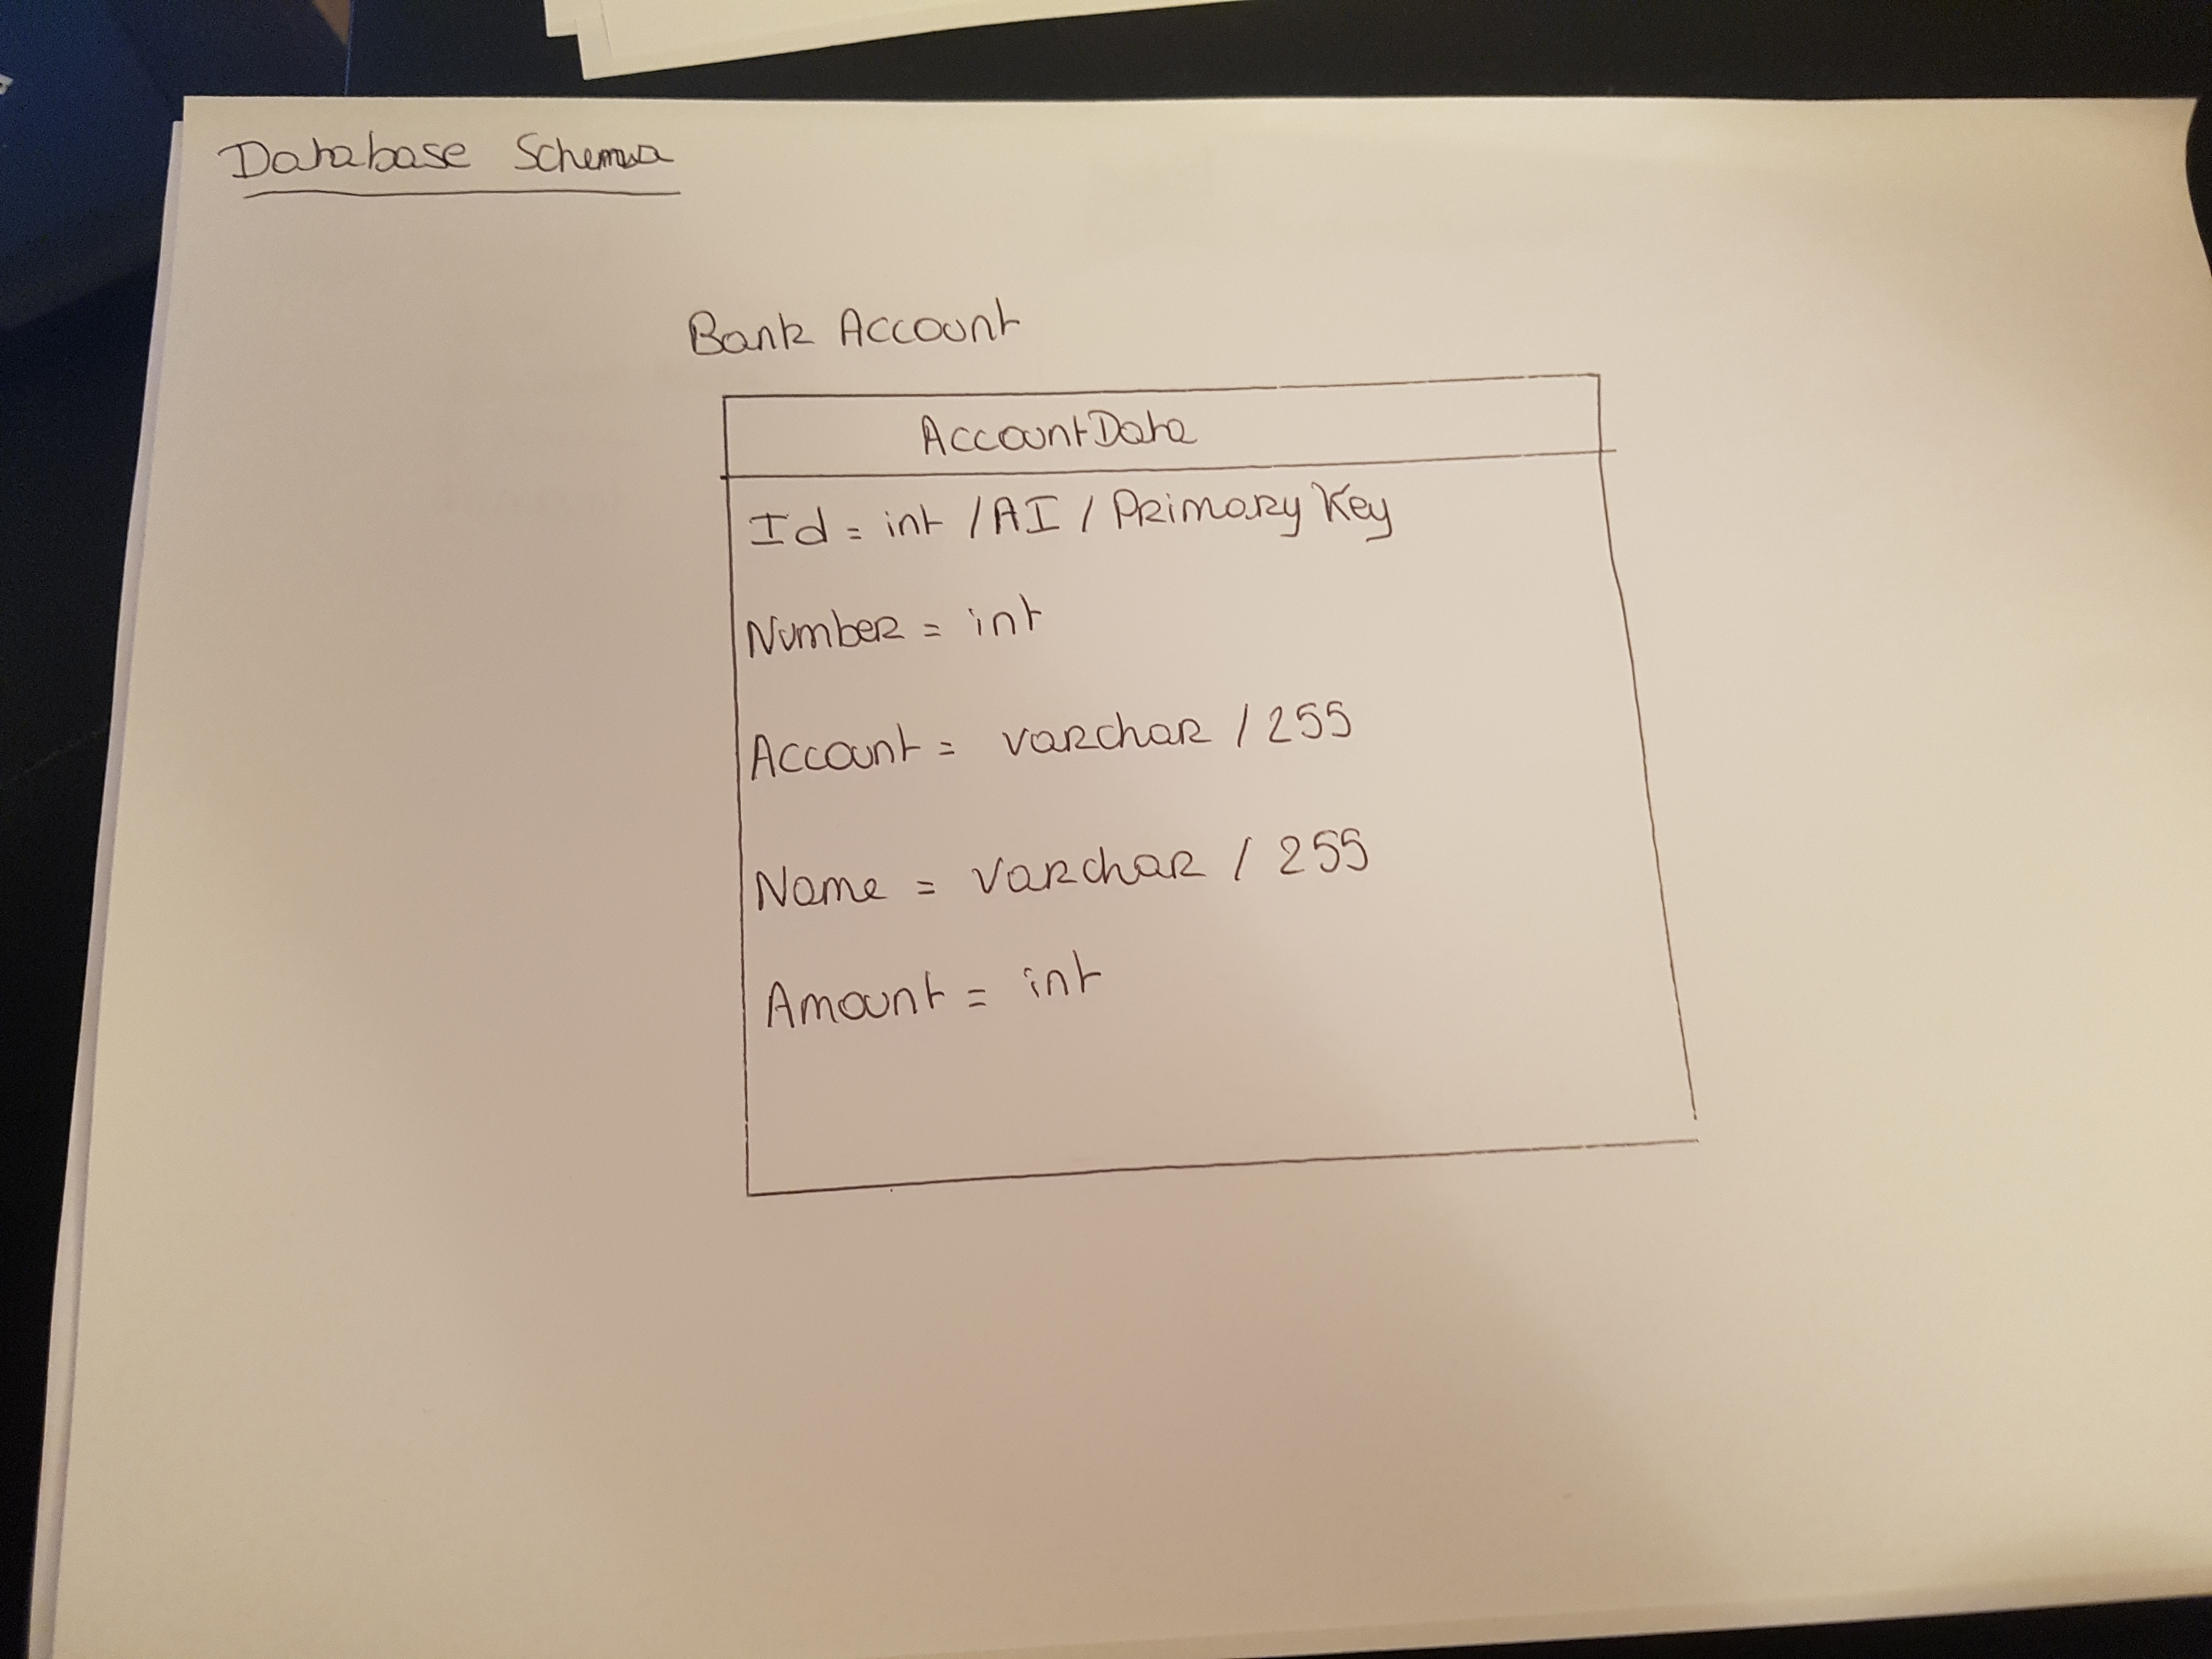 Database Schema
Bank Account
AccountData
Id = int / AI / Primary Key
Number = int
Account = varchar / 255
Name = varchar / 255
Amount = int